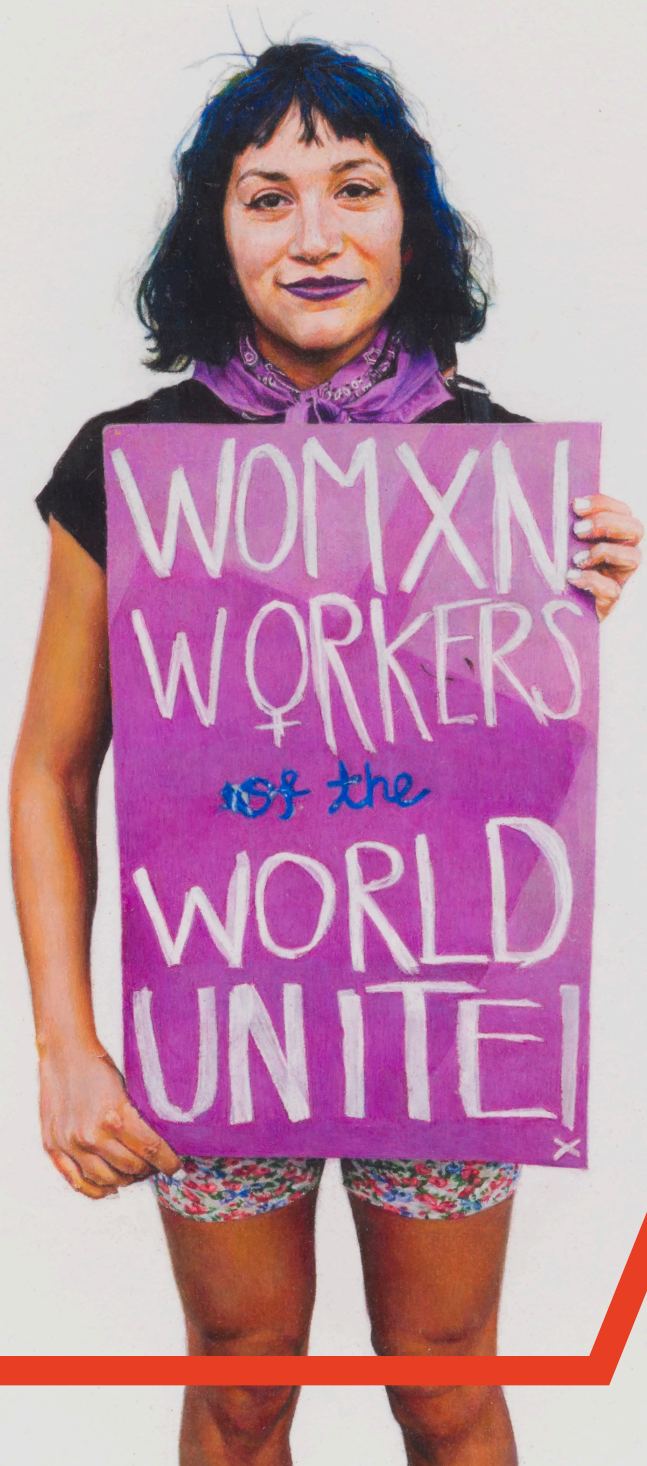 WOMXN
WORKERS
of the
WORLD
UNITE!
X